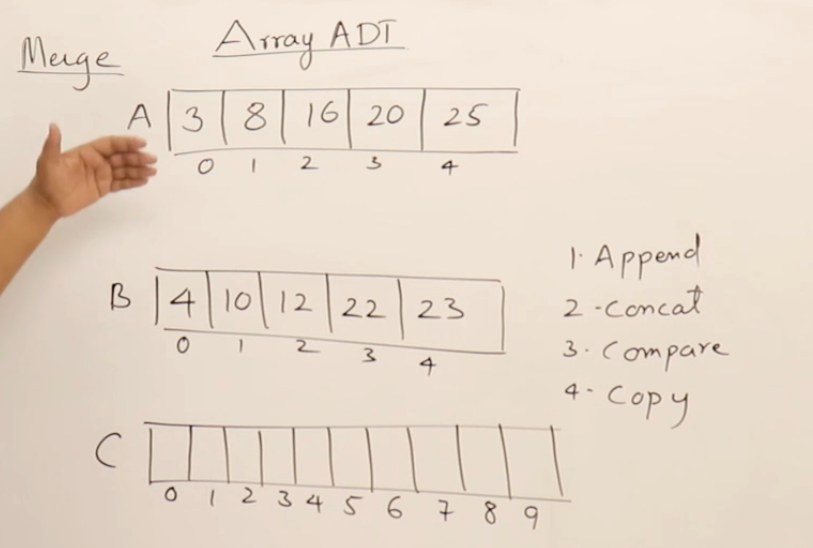 Merge
Array ADT
A 3 8 16 20 25
0 1 2 3 4
B 4 10 12 22 23
0 1 2 3 4
1. Append
2. Concat
3. Compare
4- Copy
C
0 1 2 3 4 5 6 7 8 9